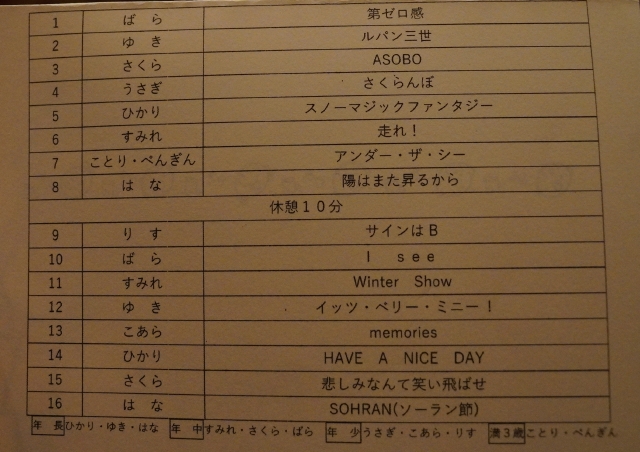 1 ばら 第ゼロ感
2 ゆき ルパン三世
3 さくら ASOBO
4 うさぎ さくらんぼ
5 ひかり スノーマジックファンタジー
6 すみれ 走れ！
7 ことり・ぺんぎん アンダー・ザ・シー
8 はな 陽はまた昇るから
休憩１０分
9 りす サインはB
10 ばら I see
11 すみれ Winter Show
12 ゆき イッツ・ベリー・ミニー！
13 こあら memories
14 ひかり HAVE A NICE DAY
15 さくら 悲しみなんて笑い飛ばせ
16 はな SOHRAN(ソーラン節)
年長 ひかり・ゆき・はな 年中 すみれ・さくら・ばら 年少 うさぎ・こあら・りす 満３歳 ことり・ぺんぎん